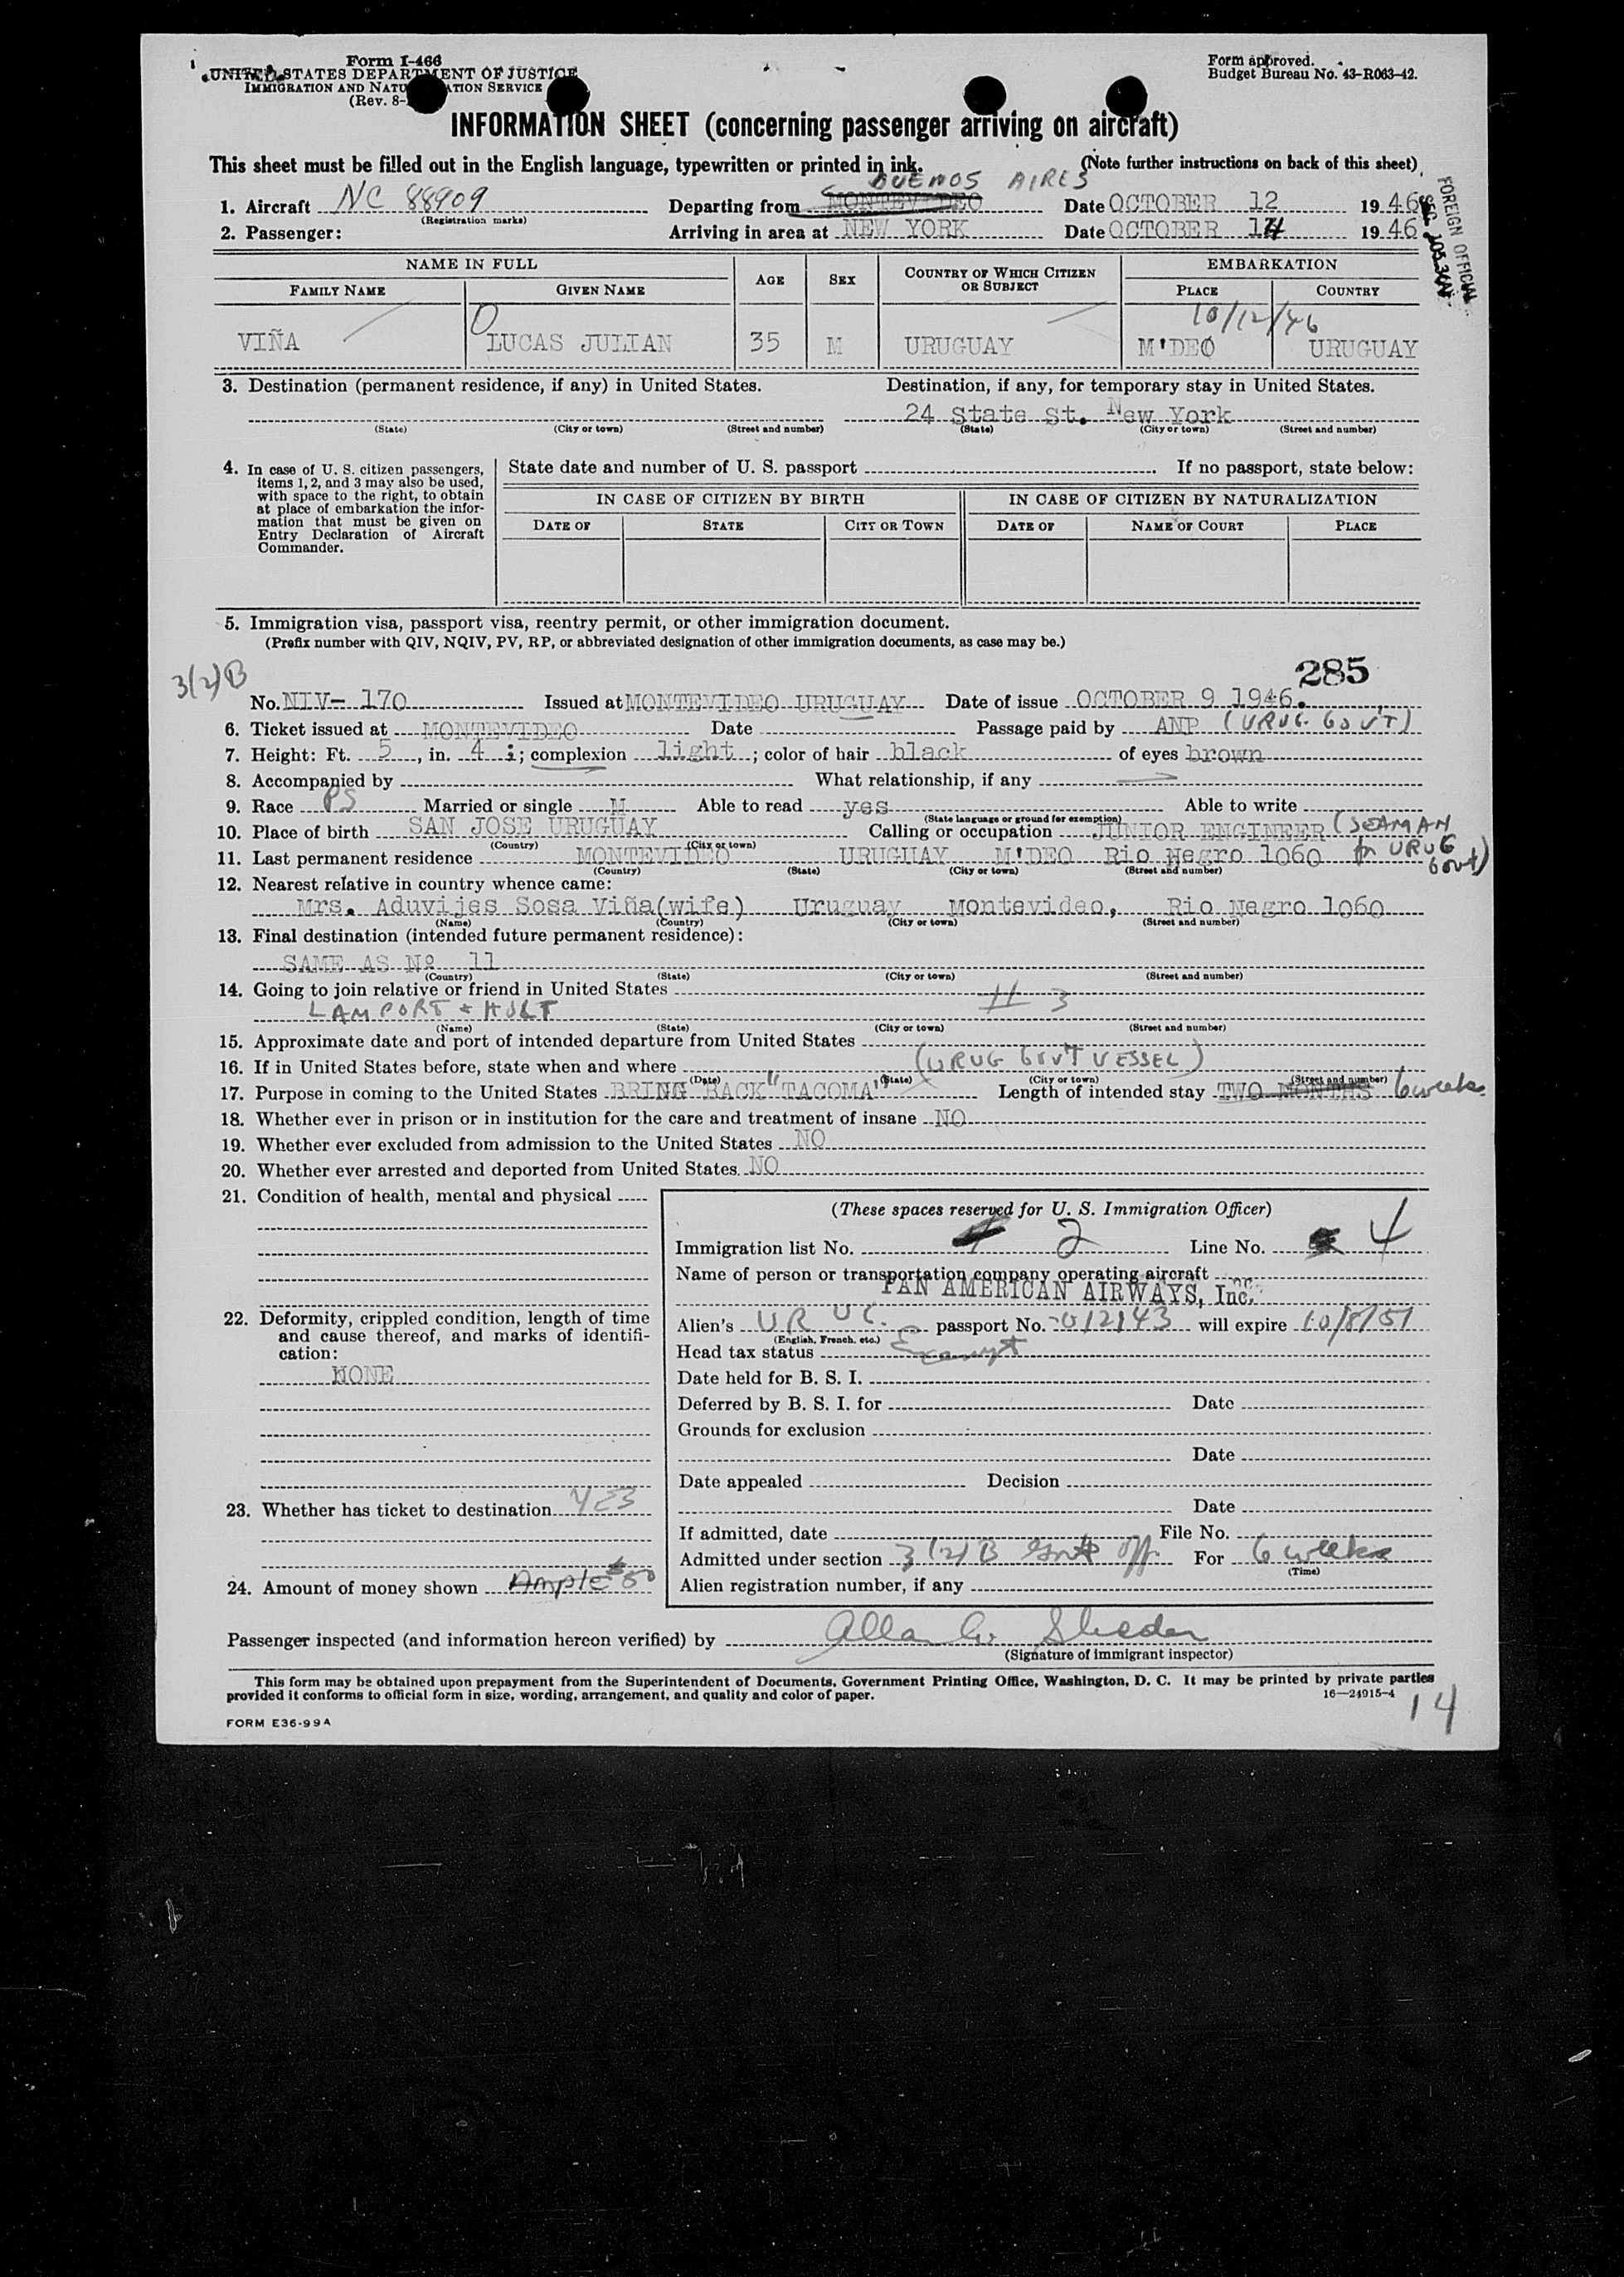 Form I-466
UNITED STATES DEPARTMENT OF JUSTICE
IMMIGRATION AND NATU ATION SERVICE
(Rev. 8-
Form approved.
Budget Bureau No. 43-R063-42.
INFORMATION SHEET (concerning passenger arriving on aircraft)
This sheet must be filled out in the English language, typewritten or printed in ink. (Note further instructions on back of this sheet)
BUENOS AIRES
1. Aircraft NC 88909 Departing from MONTEVIDEO Date OCTOBER 12 1946
(Registration marks)
2. Passenger: Arriving in area at NEW YORK Date OCTOBER 14 1946
FOREIGN OFFICIAL
SEC.
NAME IN FULL AGE SEX COUNTRY OF WHICH CITIZEN OR SUBJECT EMBARKATION
FAMILY NAME GIVEN NAME PLACE COUNTRY
10/12/46
VIÑA LUCAS JULIAN 35 M URUGUAY M'DEO URUGUAY
3. Destination (permanent residence, if any) in United States. Destination, if any, for temporary stay in United States.
24 State St. New York
(State) (City or town) (Street and number) (State) (City or town) (Street and number)
4. In case of U. S. citizen passengers, items 1, 2, and 3 may also be used, with space to the right, to obtain at place of embarkation the information that must be given on Entry Declaration of Aircraft Commander.
State date and number of U. S. passport . If no passport, state below:
IN CASE OF CITIZEN BY BIRTH IN CASE OF CITIZEN BY NATURALIZATION
DATE OF STATE CITY OR TOWN DATE OF NAME OF COURT PLACE
5. Immigration visa, passport visa, reentry permit, or other immigration document.
(Prefix number with QIV, NQIV, PV, RP, or abbreviated designation of other immigration documents, as case may be.)
3(2)B
285
No. NIV- 170 Issued at MONTEVIDEO URUGUAY Date of issue OCTOBER 9 1946.
6. Ticket issued at MONTEVIDEO Date Passage paid by ANP (URUG. GOV'T)
7. Height: Ft. 5, in. 4 ; complexion light ; color of hair black of eyes brown
8. Accompanied by What relationship, if any
9. Race PS Married or single M Able to read yes Able to write
(State language or ground for exemption)
10. Place of birth SAN JOSE URUGUAY Calling or occupation JUNIOR ENGINEER (SEAMAN
(Country) (City or town)
for URUG
Govt)
11. Last permanent residence MONTEVIDEO URUGUAY M'DEO Rio Negro 1060
(Country) (State) (City or town) (Street and number)
12. Nearest relative in country whence came:
Mrs. Aduvijes Sosa Viña(wife) Uruguay Montevideo, Rio Negro 1060
(Name) (Country) (City or town) (Street and number)
13. Final destination (intended future permanent residence):
SAME AS Nº 11
(Country) (State) (City or town) (Street and number)
14. Going to join relative or friend in United States
LAMPORT + HOLT # 3
(Name) (State) (City or town) (Street and number)
15. Approximate date and port of intended departure from United States
16. If in United States before, state when and where (URUG GOV'T VESSEL)
(Date) (State) (City or town) (Street and number)
17. Purpose in coming to the United States BRING BACK "TACOMA" Length of intended stay TWO MONTHS 6 weeks
18. Whether ever in prison or in institution for the care and treatment of insane NO
19. Whether ever excluded from admission to the United States NO
20. Whether ever arrested and deported from United States NO
21. Condition of health, mental and physical
22. Deformity, crippled condition, length of time and cause thereof, and marks of identification:
NONE
23. Whether has ticket to destination YES
24. Amount of money shown Ample $50
(These spaces reserved for U. S. Immigration Officer)
Immigration list No. 2 Line No. 4
Name of person or transportation company operating aircraft
PAN AMERICAN AIRWAYS, Inc.
Alien's URUG. passport No. 012143 will expire 10/8/51
(English, French, etc.)
Head tax status Exempt
Date held for B. S. I.
Deferred by B. S. I. for Date
Grounds for exclusion
Date
Date appealed Decision
Date
If admitted, date File No.
Admitted under section 3(2)B Govt off. For 6 weeks
(Time)
Alien registration number, if any
Passenger inspected (and information hereon verified) by
(Signature of immigrant inspector)
This form may be obtained upon prepayment from the Superintendent of Documents, Government Printing Office, Washington, D. C. It may be printed by private parties
provided it conforms to official form in size, wording, arrangement, and quality and color of paper. 16—24915-4
14
FORM E36-99A